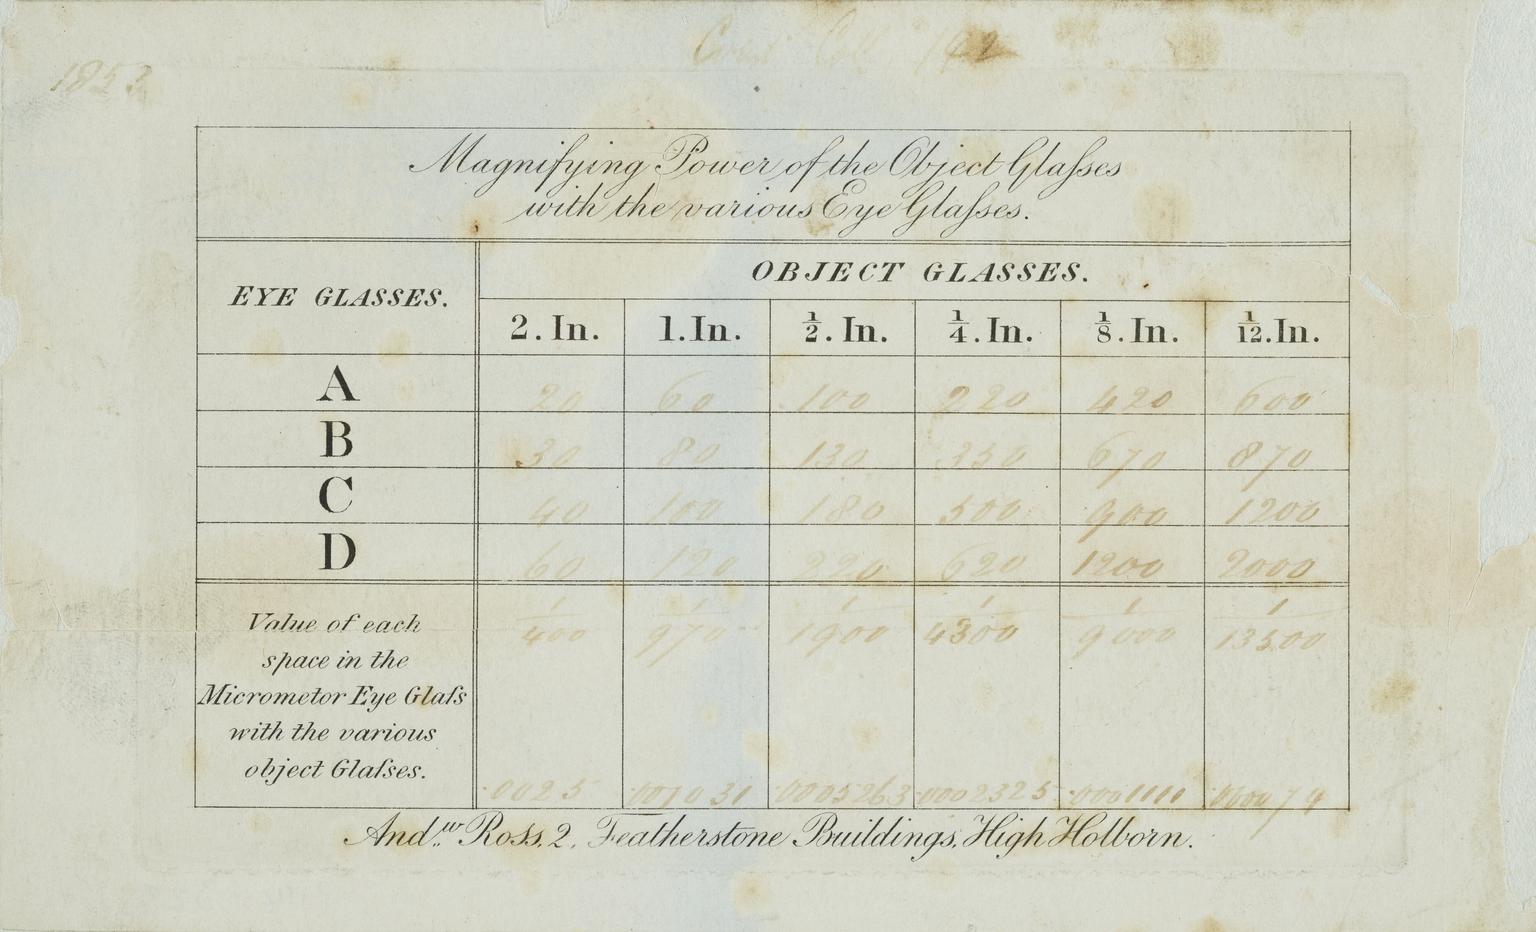 1853
Magnifying Power of the Object Glaſses
with the various Eye Glaſses.
EYE GLASSES.
OBJECT GLASSES.
2. In. 1. In. 1/2. In. 1/4. In. 1/8. In. 1/12. In.
A 20 60 100 220 420 600
B 30 80 130 350 670 870
C 40 100 180 500 900 1200
D 60 120 220 620 1200 2000
Value of each
space in the
Micrometor Eye Glaſs
with the various
object Glaſses.
1/400 1/970 1/1900 1/4300 1/9000 1/13500
.0025 .001031 .0005263 .0002325 .0001111 .000074
And.w Roſs, 2, Featherstone Buildings, High Holborn.